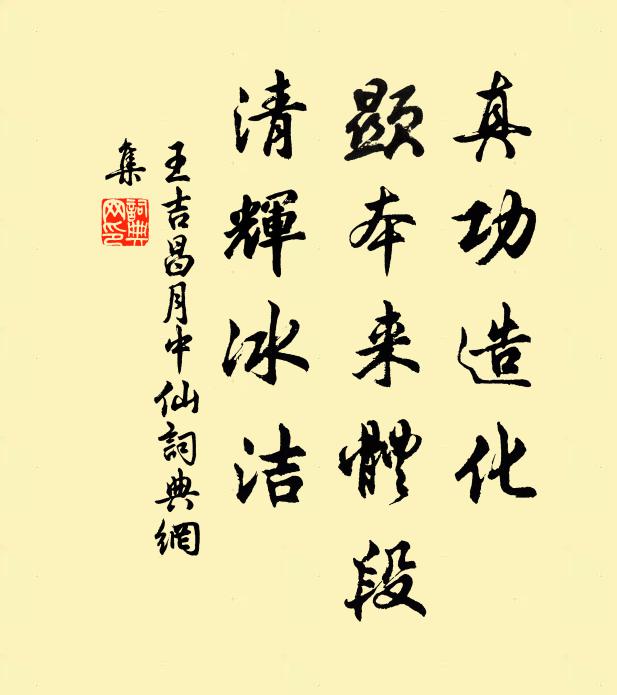 真功造化
顯本来體段
清輝冰洁
王吉昌月中仙詞典網
集
詞典网印